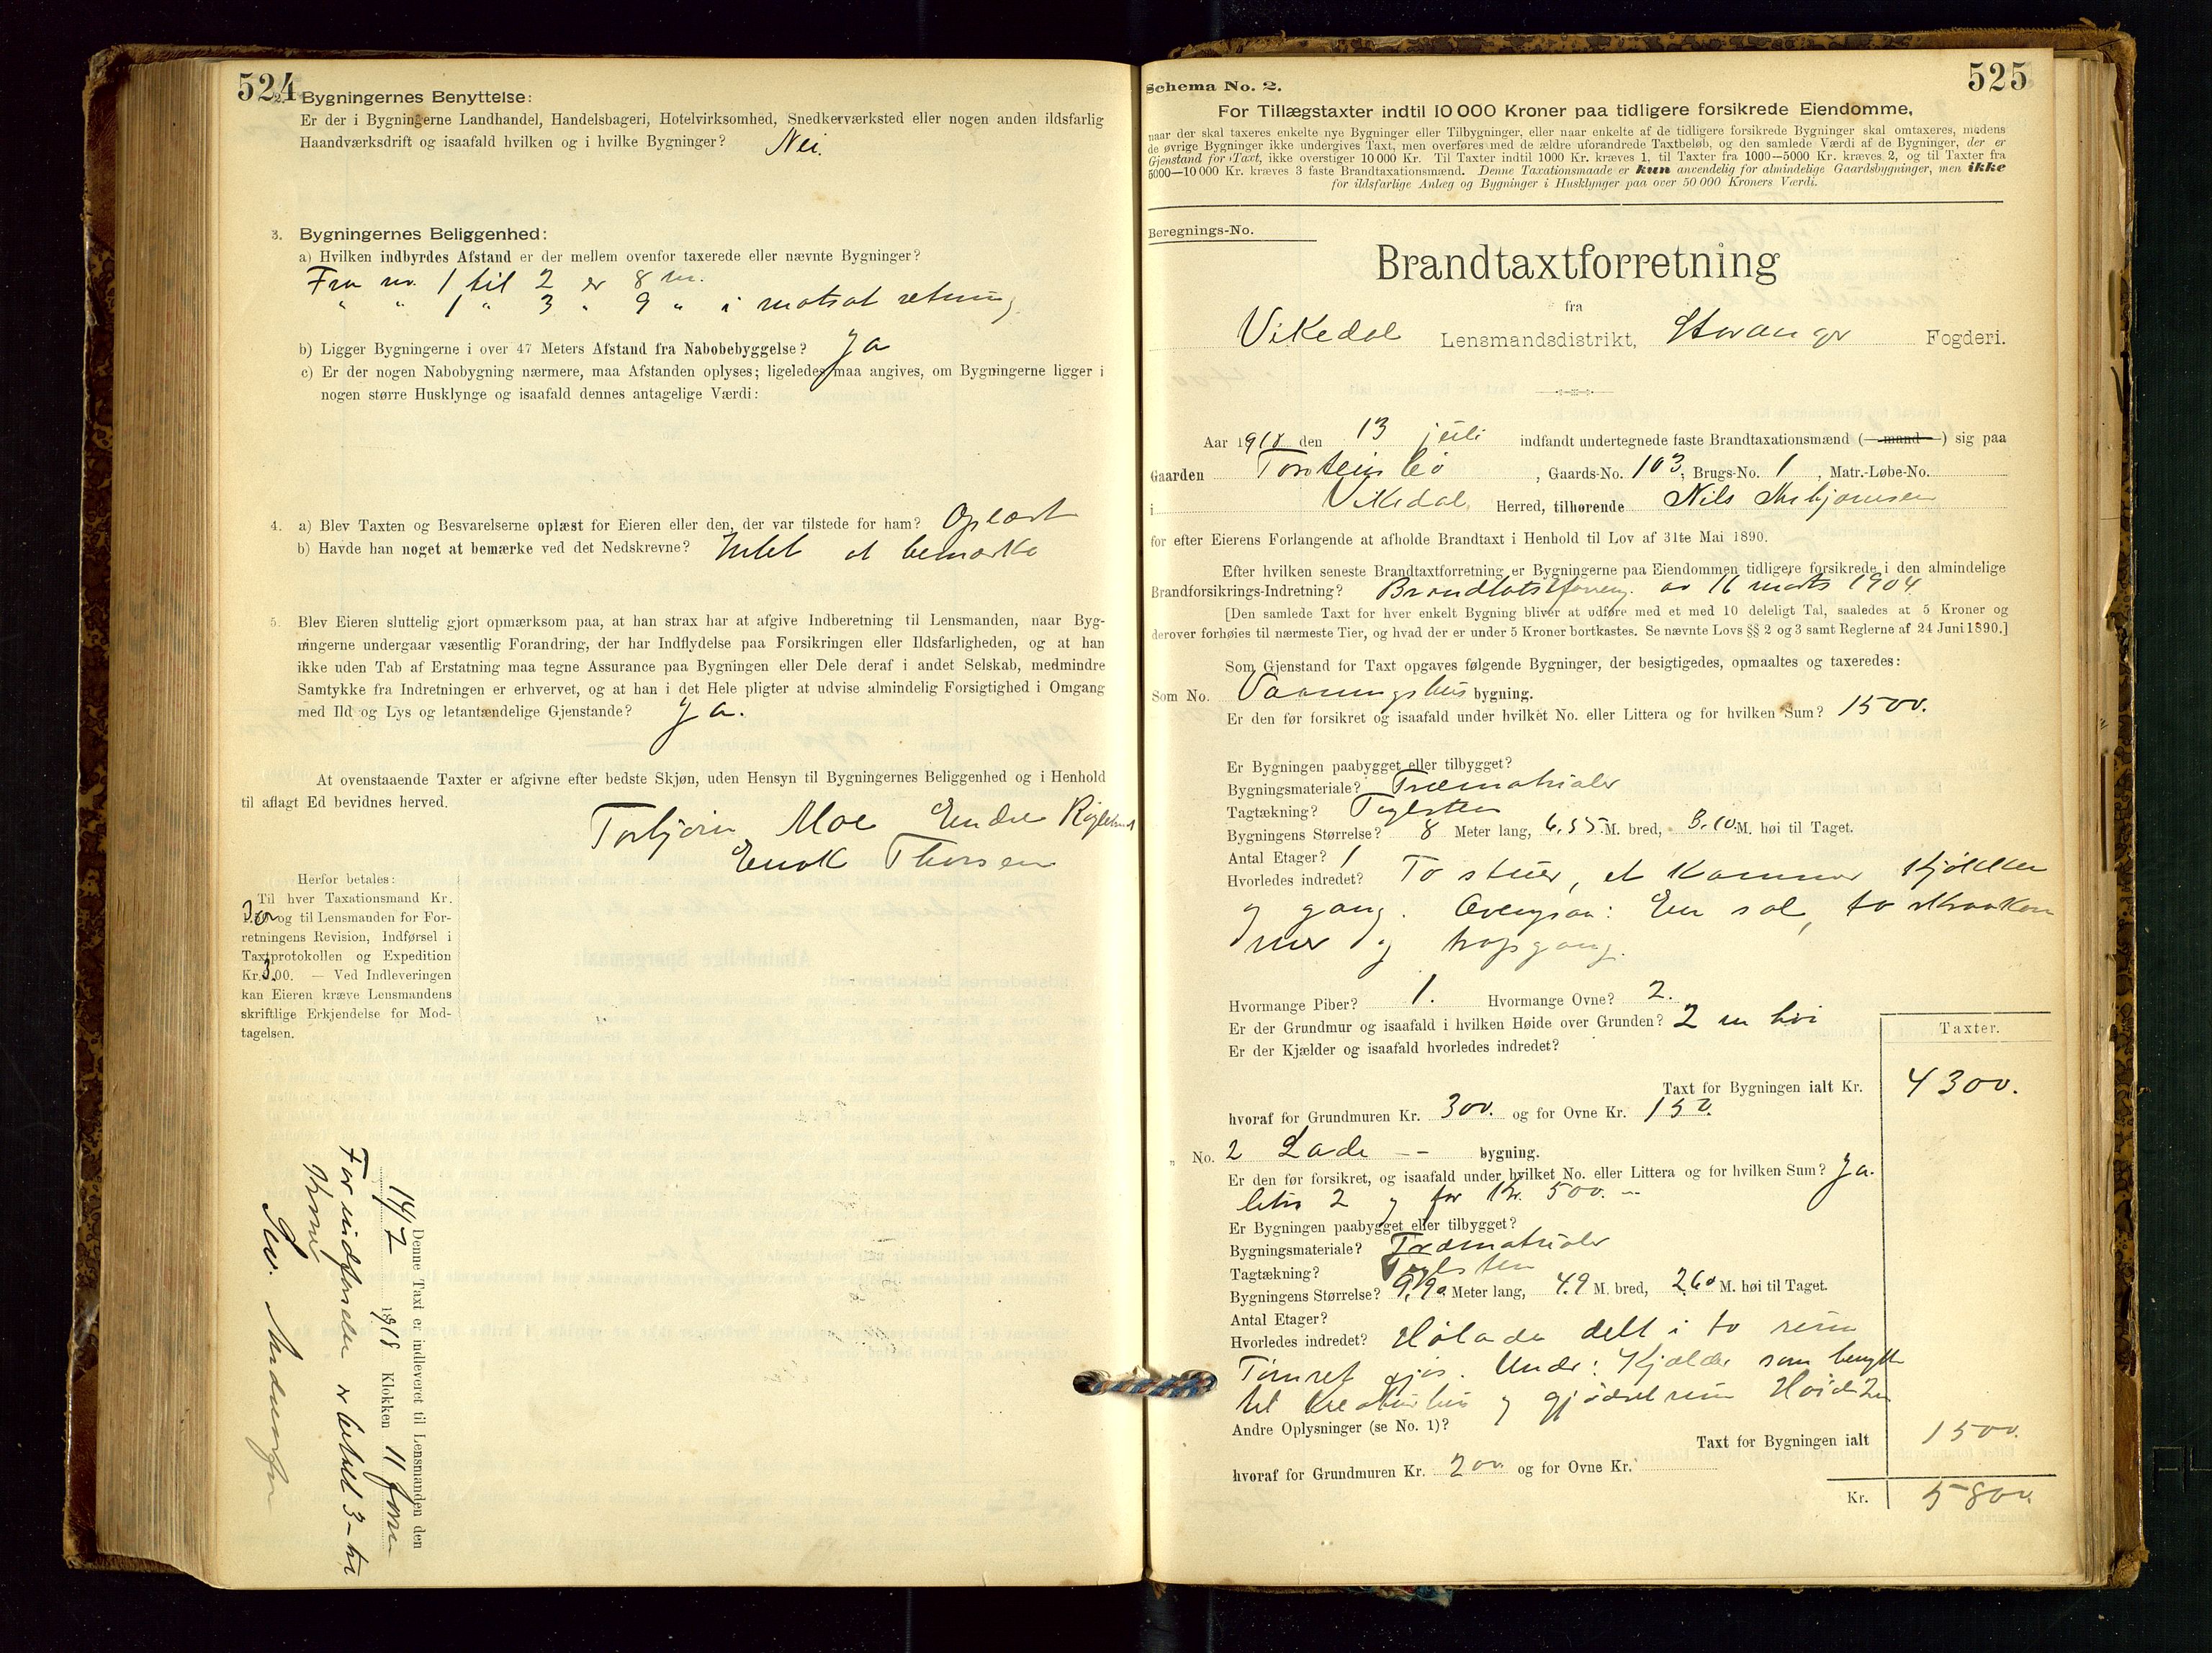 524
2. Bygningernes Benyttelse:
Er der i Bygningerne Landhandel, Handelsbageri, Hotelvirksomhed, Snedkerværksted eller nogen anden ildsfarlig
Haandværksdrift og isaafald hvilken og i hvilke Bygninger? Nei.
3. Bygningernes Beliggenhed:
a) Hvilken indbyrdes Afstand er der mellem ovenfor taxerede eller nævnte Bygninger?
Fra nr. 1 til 2 er 8 m.
" " 1 " 3 " 9 " i motsat retning
b) Ligger Bygningerne i over 47 Meters Afstand fra Nabobebyggelse? Ja
c) Er der nogen Nabobygning nærmere, maa Afstanden oplyses; ligeledes maa angives, om Bygningerne ligger i
nogen større Husklynge og isaafald dennes antagelige Værdi:
4. a) Blev Taxten og Besvarelserne oplæst for Eieren eller den, der var tilstede for ham? Oplæst
b) Havde han noget at bemærke ved det Nedskrevne? Intet at bemærke
5. Blev Eieren sluttelig gjort opmærksom paa, at han strax har at afgive Indberetning til Lensmanden, naar Byg-
ningerne undergaar væsentlig Forandring, der har Indflydelse paa Forsikringen eller Ildsfarligheden, og at han
ikke uden Tab af Erstatning maa tegne Assurance paa Bygningen eller Dele deraf i andet Selskab, medmindre
Samtykke fra Indretningen er erhvervet, og at han i det Hele pligter at udvise almindelig Forsigtighed i Omgang
med Ild og Lys og letantændelige Gjenstande? Ja.
At ovenstaaende Taxter er afgivne efter bedste Skjøn, uden Hensyn til Bygningernes Beliggenhed og i Henhold
til aflagt Ed bevidnes herved.
Torbjørn Moe Endre
Enok Thorsen
Herfor betales:
Til hver Taxationsmand Kr.
og til Lensmanden for For-
retningens Revision, Indførsel i
Taxtprotokollen og Expedition
Kr. 3.00. — Ved Indleveringen
kan Eieren kræve Lensmandens
skriftlige Erkjendelse for Mod-
tagelsen.
Denne Taxt er indleveret til Lensmanden den
14/7 1918 Klokken 11 form
For indførselen er betalt 3 - tre
Kroner
525
Schema No. 2.
For Tillægstaxter indtil 10 000 Kroner paa tidligere forsikrede Eiendomme,
naar der skal taxeres enkelte nye Bygninger eller Tilbygninger, eller naar enkelte af de tidligere forsikrede Bygninger skal omtaxeres, medens
de øvrige Bygninger ikke undergives Taxt, men overføres med de ældre uforandrede Taxtbeløb, og den samlede Værdi af de Bygninger, der er
Gjenstand for Taxt, ikke overstiger 10 000 Kr. Til Taxter indtil 1000 Kr. kræves 1, til Taxter fra 1000—5000 Kr. kræves 2, og til Taxter fra
5000—10 000 Kr. kræves 3 faste Brandtaxationsmænd. Denne Taxationsmaade er kun anvendelig for almindelige Gaardsbygninger, men ikke
for ildsfarlige Anlæg og Bygninger i Husklynger paa over 50 000 Kroners Værdi.
Beregnings-No.
Brandtaxtforretning
fra
Vikedal Lensmandsdistrikt, Stavanger Fogderi.
Aar 1918 den 13 juli indfandt undertegnede faste Brandtaxationsmænd (mand) sig paa
Gaarden , Gaards-No. 103, Brugs-No. 1, Matr.-Løbe-No.
i Vikedal Herred, tilhørende Nils
for efter Eierens Forlangende at afholde Brandtaxt i Henhold til Lov af 31te Mai 1890.
Efter hvilken seneste Brandtaxtforretning er Bygningerne paa Eiendommen tidligere forsikrede i den almindelige
Brandforsikrings-Indretning? av 16 marts 1904
[Den samlede Taxt for hver enkelt Bygning bliver at udføre med et med 10 deleligt Tal, saaledes at 5 Kroner og
derover forhøies til nærmeste Tier, og hvad der er under 5 Kroner bortkastes. Se nævnte Lovs §§ 2 og 3 samt Reglerne af 24 Juni 1890.]
Som Gjenstand for Taxt opgaves følgende Bygninger, der besigtigedes, opmaaltes og taxeredes:
Som No. Vaaningshus bygning.
Er den før forsikret og isaafald under hvilket No. eller Littera og for hvilken Sum? 1500.
Er Bygningen paabygget eller tilbygget?
Bygningsmateriale? Træmatrialer
Tagtækning? Teglsten
Bygningens Størrelse? 8 Meter lang, 6.55 M. bred, 3.10 M. høi til Taget.
Antal Etager? 1
Hvorledes indredet? To stuer, et kammer kjøkken
og gang. Ovenpaa: En sal, to skraakam
mer og trapgang.
Hvormange Piber? 1. Hvormange Ovne? 2.
Er der Grundmur og isaafald i hvilken Høide over Grunden? 2 m høi
Er der Kjælder og isaafald hvorledes indredet?
Taxter.
Taxt for Bygningen ialt Kr. 4300.
hvoraf for Grundmuren Kr. 300. og for Ovne Kr. 150.
" No. 2 Lade -- bygning.
Er den før forsikret, og isaafald under hvilket No. eller Littera og for hvilken Sum? Ja.
2 og for Kr. 500. -
Er Bygningen paabygget eller tilbygget?
Bygningsmateriale? Træmatrialer
Tagtækning? Teglsten
Bygningens Størrelse? 9.90 Meter lang, 4.9 M. bred, 2.60 M. høi til Taget.
Antal Etager?
Hvorledes indredet? Hølade delt i to rum
Tømret fjøs. Under: Kjælder som benyttes
til kreaturhus og gjødselrum Høide 2 m
Andre Oplysninger (se No. 1)?
Taxt for Bygningen ialt 1500.
hvoraf for Grundmuren Kr. 200 og for Ovne Kr.
Kr. 5800.